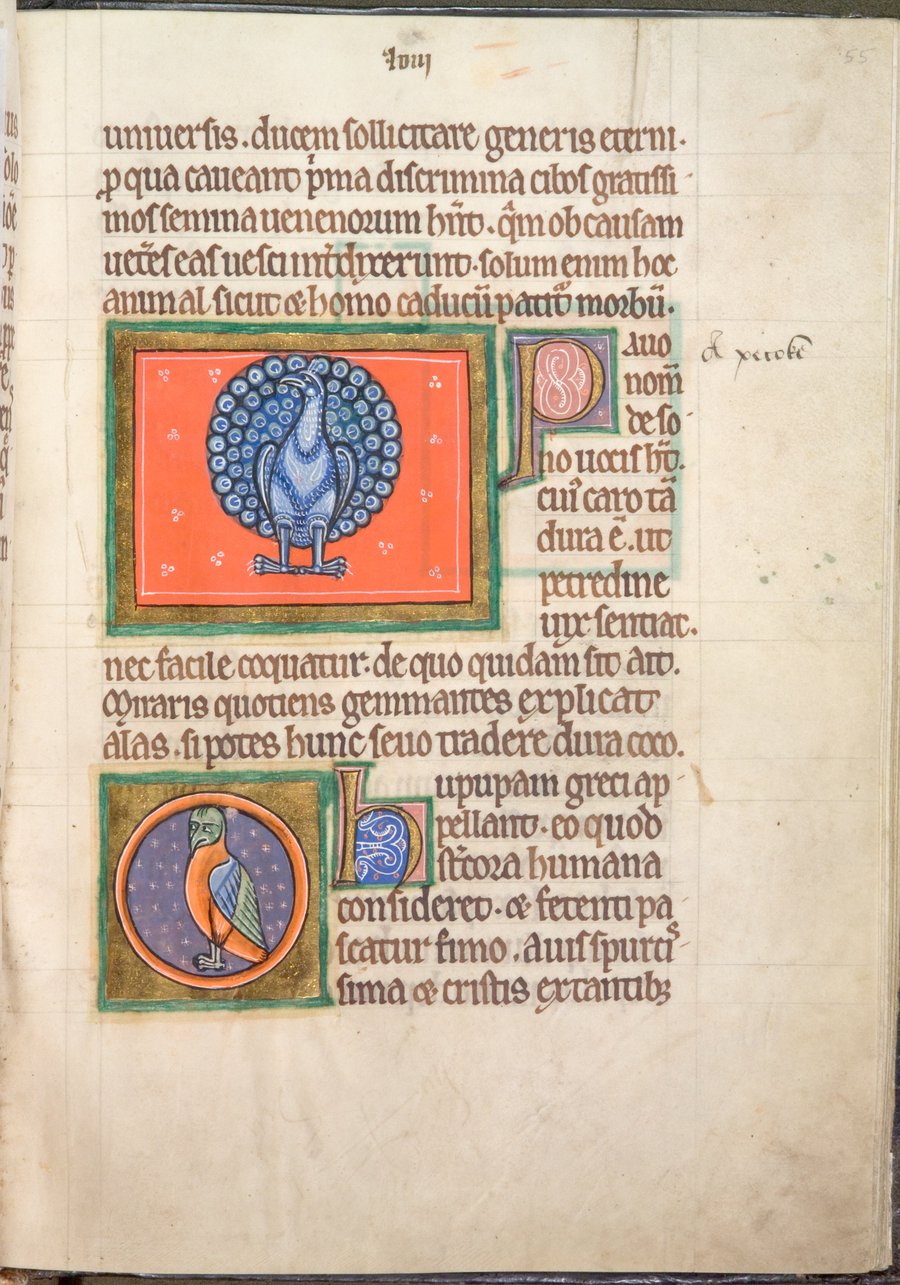 lviii
55
uniuersis. ducem sollicitare generis eterni.
p qua caueant pͥma discrimina cibos gratissi-
mos semina uenenorum hn̄t. qͣm ob causam
uet̄es eas uesci int̄dixerunt. solum enim hoc
animal sicut & homo caducū patitᷣ morbū.
Pauo
nom̄
de so-
no uocis h̄t.
cuiꝰ caro tā
dura ē. ut
petredine
uix sentiat.
nec facile coquatur. de quo quidam sic ait.
Miraris quotiens gemmantes explicat
alas. si potes hunc seuo tradere dura coco.
hupupam greci ap-
pellant. eo quod
st̄cora humana
consideret. & fetenti pa-
scatur fimo. auis spurcis-
sima & cristis extantibꝫ